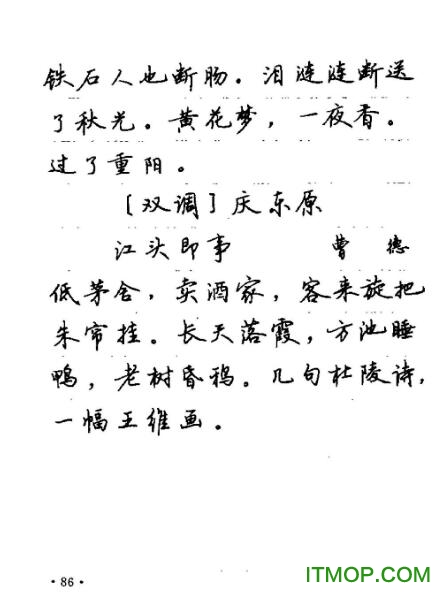 铁石人也断肠。泪涟涟断送
了秋光。黄花梦，一夜香。
过了重阳。
〔双调〕庆东原
江头即事 曹德
低茅舍，卖酒家，客来旋把
朱帘挂。长天落霞，方池睡
鸭，老树昏鸦。几句杜陵诗，
一幅王维画。
·86·
ITMOP.COM